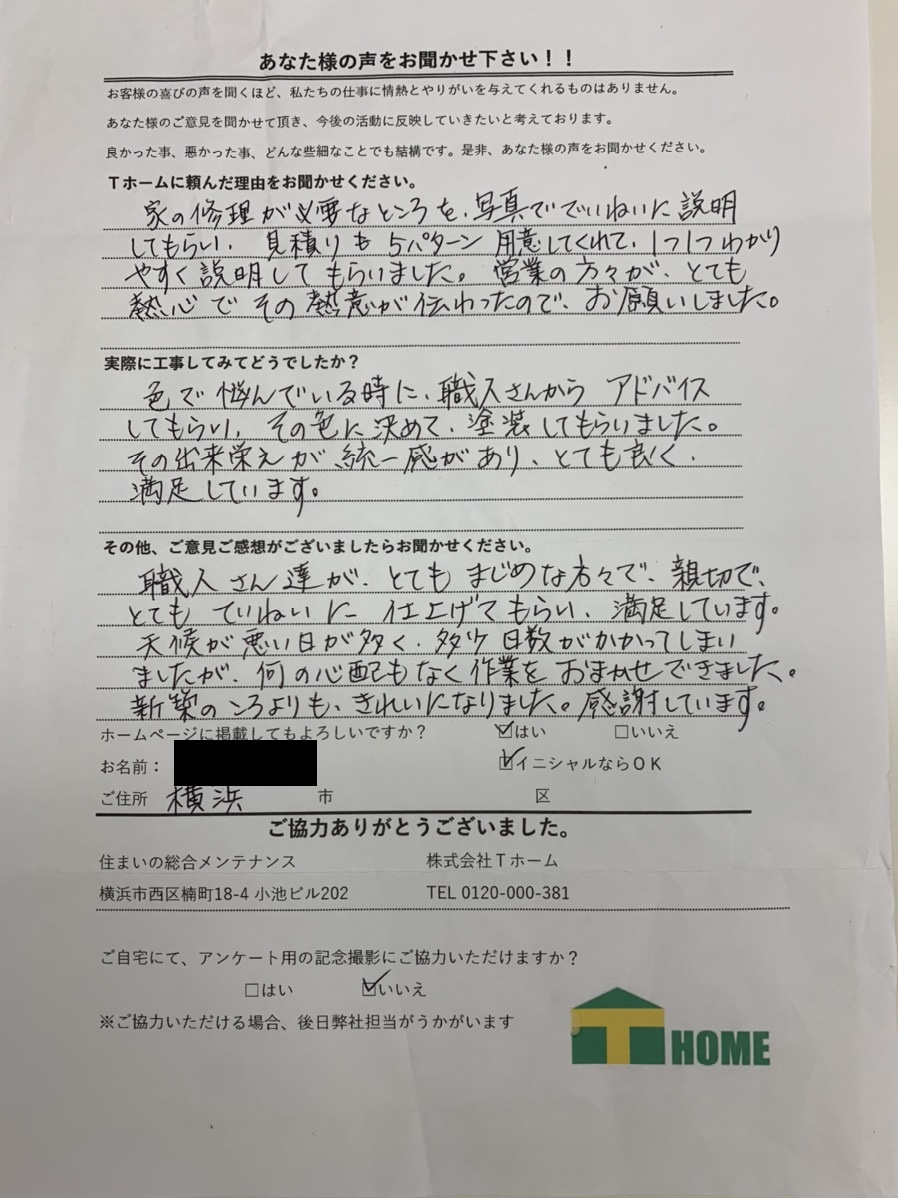 あなた様の声をお聞かせ下さい！！
お客様の喜びの声を聞くほど、私たちの仕事に情熱とやりがいを与えてくれるものはありません。
あなた様のご意見を聞かせて頂き、今後の活動に反映していきたいと考えております。
良かった事、悪かった事、どんな些細なことでも結構です。是非、あなた様の声をお聞かせください。
Tホームに頼んだ理由をお聞かせください。
家の修理が必要なところを、写真でていねいに説明
してもらい、見積りも5パターン用意してくれて、1つ1つわかり
やすく説明してもらいました。営業の方々が、とても
熱心でその熱意が伝わったので、お願いしました。
実際に工事してみてどうでしたか？
色で悩んでいる時に、職人さんからアドバイス
してもらい、その色に決めて、塗装してもらいました。
その出来栄えが統一感があり、とても良く、
満足しています。
その他、ご意見ご感想がございましたらお聞かせください。
職人さん達が、とてもまじめな方々で、親切で、
とてもていねいに仕上げてもらい、満足しています。
天候が悪い日が多く、多少日数がかかってしまい
ましたが、何の心配もなく作業をおまかせできました。
新築のころよりも、きれいになりました。感謝しています。
ホームページに掲載してもよろしいですか？ ☑はい □いいえ
お名前： ☑イニシャルならOK
ご住所 横浜 市 区
ご協力ありがとうございました。
住まいの総合メンテナンス 株式会社Tホーム
横浜市西区楠町18-4 小池ビル202 TEL 0120-000-381
ご自宅にて、アンケート用の記念撮影にご協力いただけますか？
□はい ☑いいえ
※ご協力いただける場合、後日弊社担当がうかがいます
T HOME